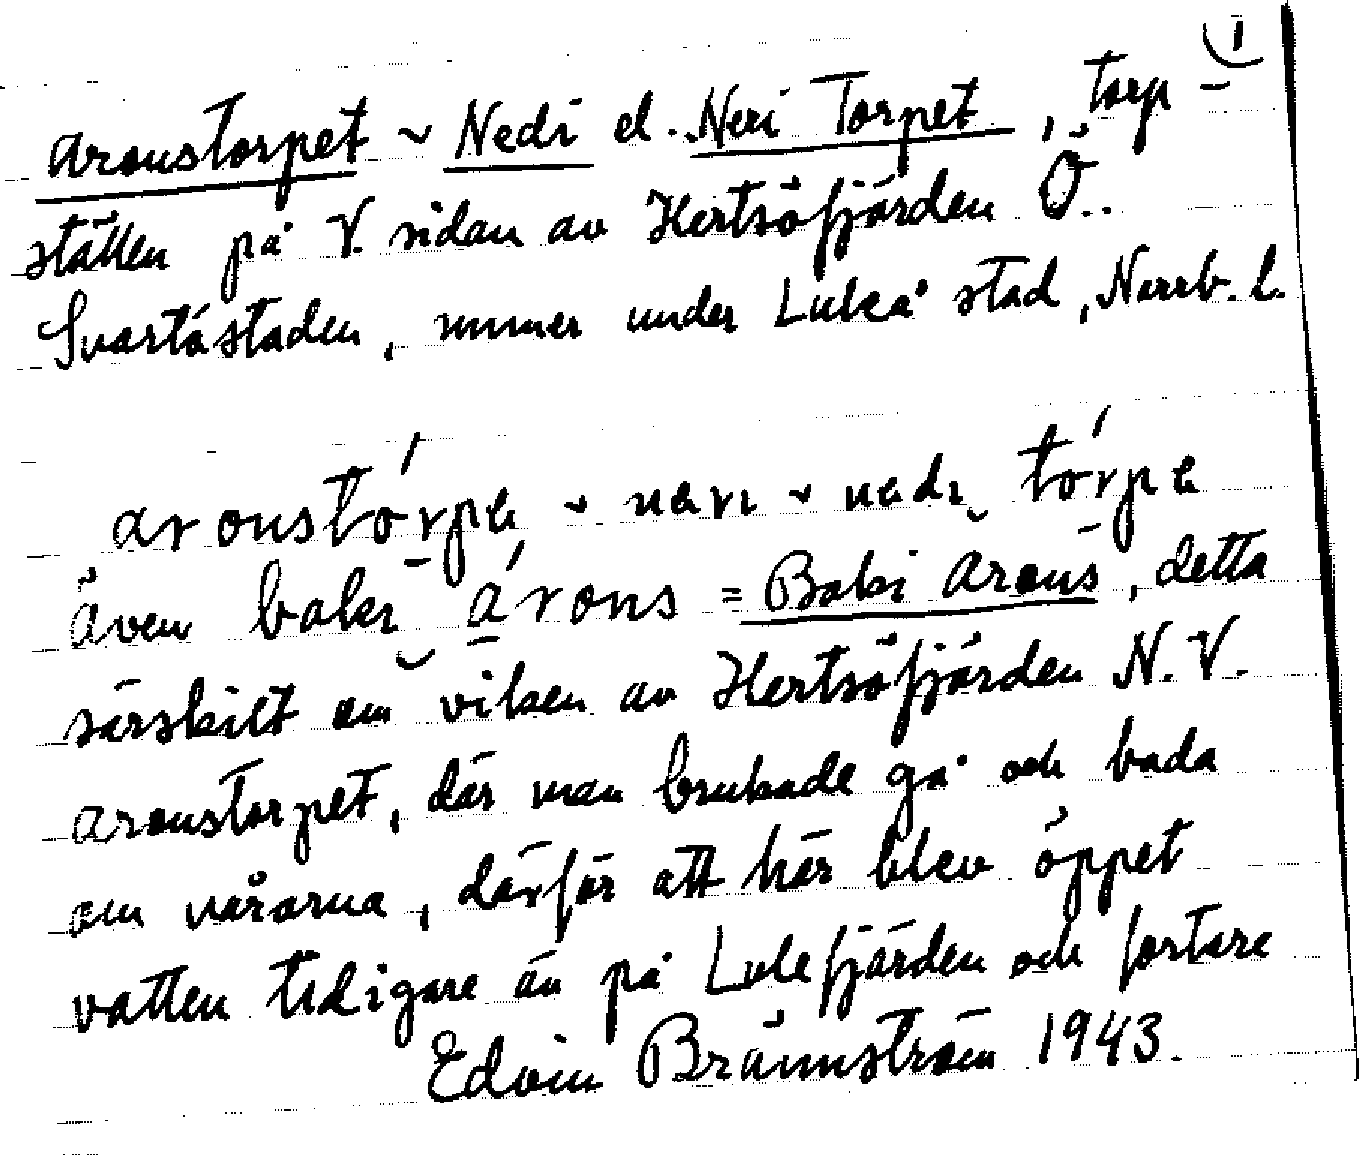 1
Aronstorpet ~ Nedi el. Neri Torpet, torp-
ställen på V. sidan av Hertsöfjärden Ö.
Svartöstaden, numer under Luleå stad, Norrb. l.
aronstórpe ~ neri ~ nedi tórpe
även baki árons = Baki Arons, detta
särskilt om viken av Hertsöfjärden N.V.
Aronstorpet, där man brukade gå och bada
om vårarna, därför att här blev öppet
vatten tidigare än på Lulefjärden och fortare
Edvin Brännström 1943.